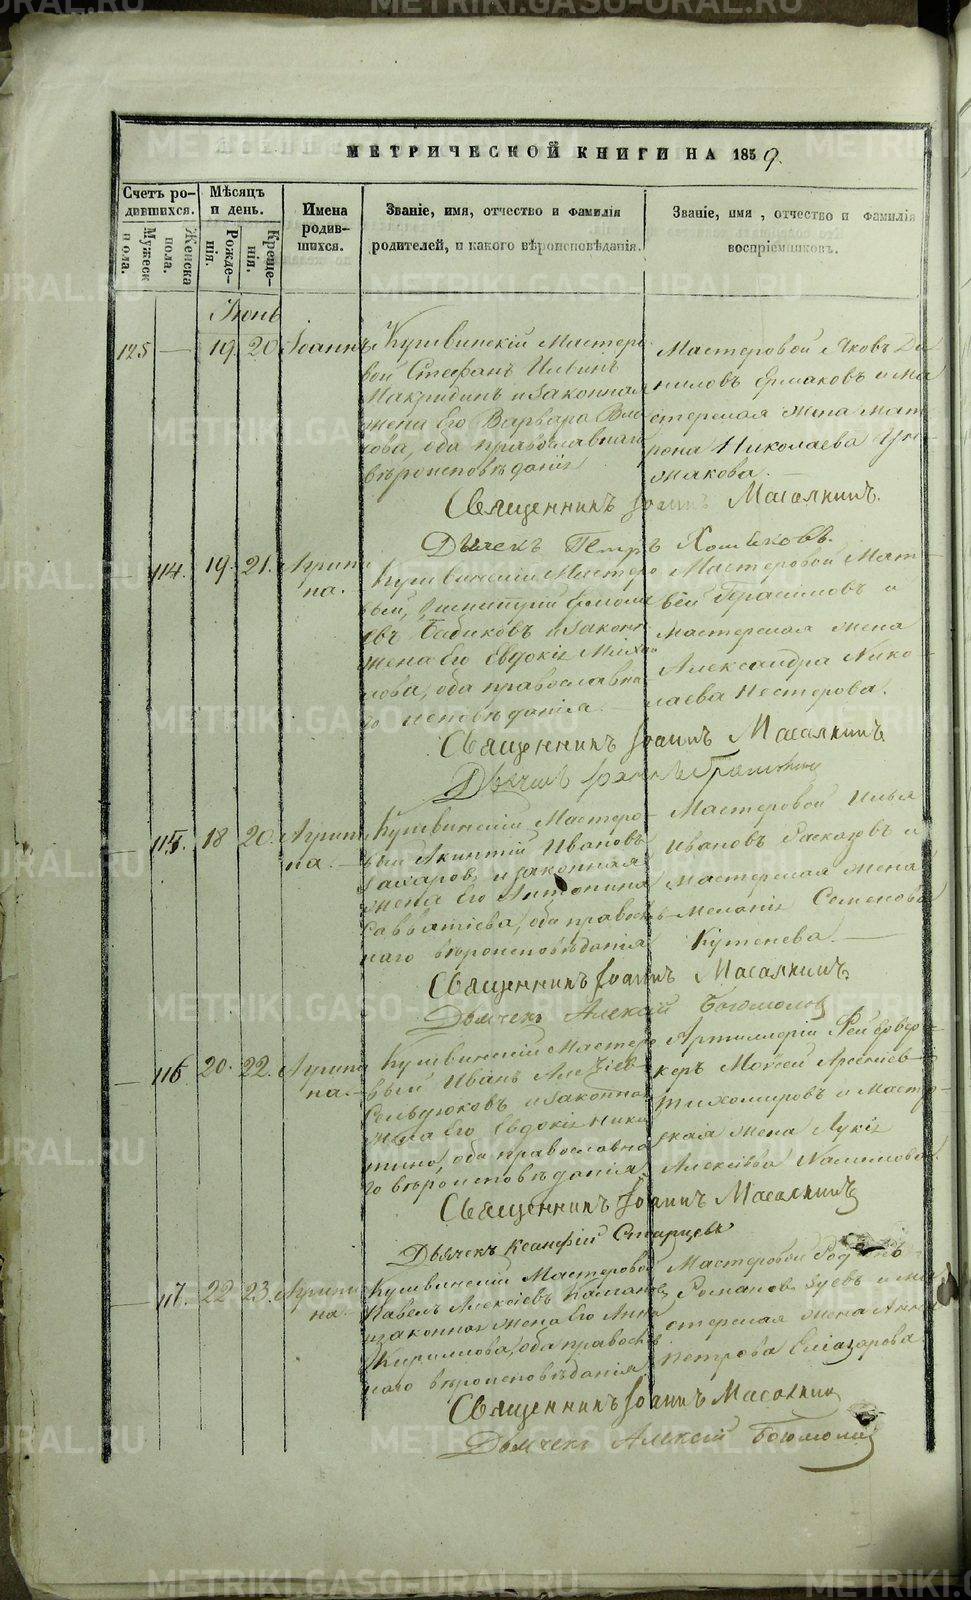 МЕТРИЧЕСКОЙ КНИГИ НА 1859.
Счетъ родившихся.
Мужеска пола.
Женска пола.
Мѣсяцъ и день.
Рожденія.
Крещенія.
Имена родившихся.
Званіе, имя, отчество и фамилія
родителей, и какого вѣроисповѣданія.
Званіе, имя, отчество и фамилія
воспріемниковъ.
Іюнь
125 — 19. 20. Іоаннъ.
Кушвинскій Мастеро
вой Стефанъ
и законная
жена его Варвара
оба православнаго
вѣроисповѣданія
Мастеровой Яковъ Да
ниловъ Ермаковъ и ма
стерская жена Мат
рона Николаева
Священникъ Іоаннъ Масалкинъ.
Дьячекъ Петръ
— 114. 19. 21. Агрипи
на.
Кушвинскій Мастеро
вый,
Бабиковъ и законн
жена его Евдокія Михаи
лова, оба православна
го исповѣданія.
Мастеровой Мат
вей Герасимовъ и
мастерская жена
Александра Нико
лаева Нестерова.
Священникъ Іоаннъ Масалкинъ
Дьячекъ
— 115. 18 20. Агрипи
на.
Кушвинскій Мастеро
вый Акинтій Ивановъ
Захаровъ и законная
жена его Антонина
Савватіева, оба православ
наго вѣроисповѣданія
Мастеровой Илья
Ивановъ и
мастерская жена
Меланія Семенова
Кутенева.
Священникъ Іоаннъ Масалкинъ
Дьячекъ Алексій Богомоловъ
— 116 20. 22. Агрипи
на.
Кушвинскій Мастеро
вый Иванъ Алексіев
и законная
жена его Евдокія Ники
тина, оба православна
го вѣроисповѣданія.
Артиллеріи Фейервер
керъ Мокей Арсеніев
Тихомировъ и Мастер
ская жена Лукія
Алексіева
Священникъ Іоаннъ Масалкинъ
Дьячекъ Ксанфій Старцевъ
— 117. 22. 23. Агрипи
на.
Кушвинскій Мастеровой
Павелъ Алексіевъ
и законная жена его Анна
Кириллова, оба православ
наго вѣроисповѣданія
Мастеровой
Романовъ Зуевъ и ма
стерская жена Анна
Петрова Елеазарова
Священникъ Іоаннъ Масалкинъ
Дьячекъ Алексій Богомоловъ
METRIKI.GASO-URAL.RU